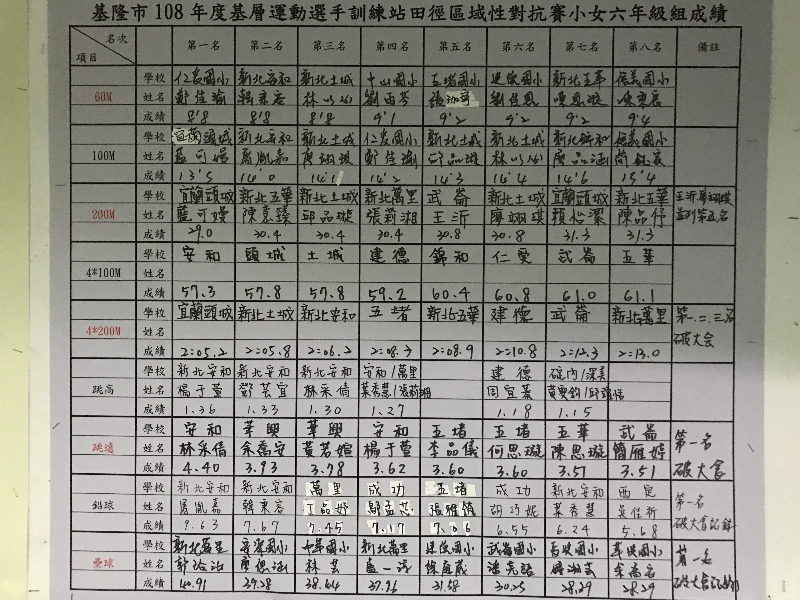 基隆市108年度基層運動選手訓練站田徑區域性對抗賽小女六年級組成績
名次 項目 第一名 第二名 第三名 第四名 第五名 第六名 第七名 第八名 備註
60M
學校 仁愛國小 新北安和 新北土城 中山國小 五堵國小 建德國小 新北五華 信義國小
姓名 鄭佳瑜 韓東容
成績 8'8 8'8 8'8 9'1 9'2 9'2 9'2 9'4
100M
學校 宜蘭頭城 新北安和 新北土城 仁愛國小 新北土城 新北土城 新北錦和 信義國小
姓名 鄭佳瑜 邱品璇
成績 13'5 14'0 14'1 14'2 14'3 14'4 14'6 15'4
200M
學校 宜蘭頭城 新北五華 新北土城 新北萬里 武崙 新北土城 宜蘭頭城 新北五華
姓名 陳意臻 邱品璇 張莉湘 王沂 廖翊琪 賴怡潔
成績 29.0 30.4 30.4 30.4 30.8 30.8 31.3 31.3
王沂廖翊琪
並列第五名
4*100M
學校 安和 頭城 土城 建德 錦和 仁愛 武崙 五華
姓名
成績 57.3 57.8 57.8 59.2 60.4 60.8 61.0 61.1
4*200M
學校 宜蘭頭城 新北土城 新北安和 五堵 新北五華 建德 武崙 新北萬里
姓名
成績 2:05.2 2:05.8 2:06.2 2:08.3 2:08.9 2:10.8 2:12.3 2:13.0
第一.二.三名
破大会
跳高
學校 新北安和 新北安和 新北安和 安和/萬里 建德
姓名 楊于萱 鄧芸宜 林采倩 葉秀慧/張莉湘 周宜蓁
成績 1.36 1.33 1.30 1.27 1.18 1.15
跳遠
學校 安和 華興 華興 安和 五堵 五堵 五華 武崙
姓名 林采倩 余喬安 黃若媗 楊于萱 李品儀 何思璇 陳思璇 簡雁婷
成績 4.40 3.93 3.78 3.62 3.60 3.60 3.51 3.51
第一名
破大會
鉛球
學校 新北安和 新北安和 萬里 成功 五堵 成功 新北安和 西定
姓名 韓東容 丁品妤 張雅筑 胡巧妮 葉秀慧
成績 9.63 7.67 7.45 7.17 7.06 6.55 6.24 5.68
第一名
破大會記錄
壘球
學校 新北萬里 安樂國小 中華國小 新北萬里 建德國小 武崙國小 長樂國小 華興國小
姓名 林芸
成績 40.91 39.28 38.64 37.96 31.58 30.25 28.29 28.29
第一名